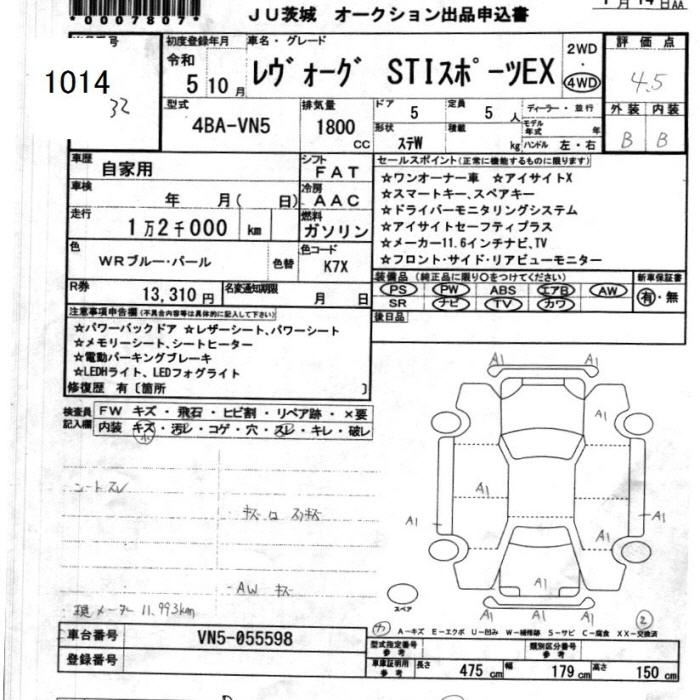 *0007807*
JU茨城 オークション出品申込書
1014
32
初度登録年月
令和
5年10月
車名・グレード
レヴォーグ STIスポーツEX
2WD
・
4WD
評価点
4.5
外装 内装
B B
型式
4BA-VN5
排気量
1800
CC
ドア
5
定員
5人
ディーラー・並行
モデル年式 年
形状
ステW
積載
kg
ハンドル 左・右
車歴
自家用
シフト
FAT
車検
年 月( 日)
冷房
AAC
走行
1万2千000 km
燃料
ガソリン
色
WRブルー・パール
色替
色コード
K7X
R券
13,310円
名変通知期限
月 日
セールスポイント(正常に機能するものに限ります)
☆ワンオーナー車 ☆アイサイトX
☆スマートキー、スペアキー
☆ドライバーモニタリングシステム
☆アイサイトセーフティプラス
☆メーカー11.6インチナビ、TV
☆フロント・サイド・リアビューモニター
装備品(純正品に限り○をつけてください)
PS PW ABS エアB AW
SR ナビ TV カワ
新車保証書
有・無
後日品
注意事項申告欄(不具合内容等は具体的に記入して下さい)
☆パワーバックドア ☆レザーシート、パワーシート
☆メモリーシート、シートヒーター
☆電動パーキングブレーキ
☆LEDHライト、LEDフォグライト
修復歴 有〔箇所 〕
検査員記入欄
FW キズ・飛石・ヒビ割・リペア跡・×要
内装 キズ・汚レ・コゲ・穴・スレ・キレ・破レ
シートスレ
AW キズ
現メーター 11,993km
A1 A1
A1
A1 A1
A1 A1
A1
A1
A1 A1 A1
スペア
2
A-キズ E-エクボ U-凹み W-補修跡 S-サビ C-腐食 XX-交換済
車台番号
VN5-055598
登録番号
型式指定番号
参考
類別区分番号
参考
車庫証明用
参考
長さ 475cm 幅 179cm 高さ 150cm